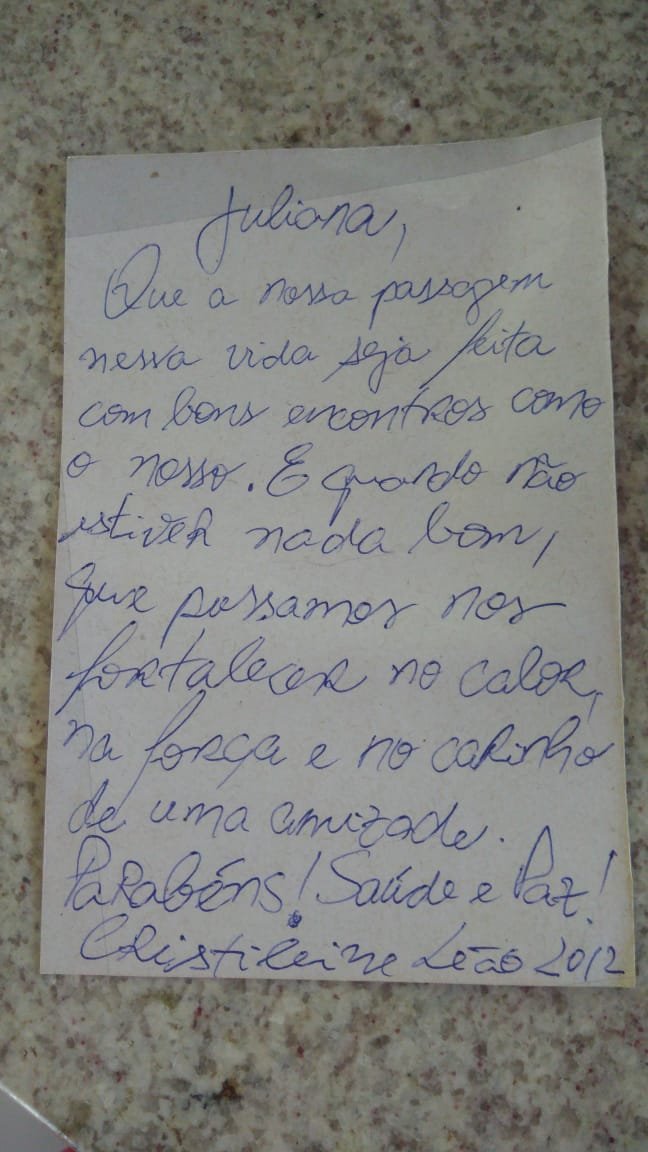 Juliana,
Que a nossa passagem
nessa vida seja feita
com bons encontros como
o nosso. E quando não
estiver nada bom,
que possamos nos
fortalecer no calor,
na força e no carinho
de uma amizade.
Parabéns! Saúde e Paz!
Cristileine Leão 2012